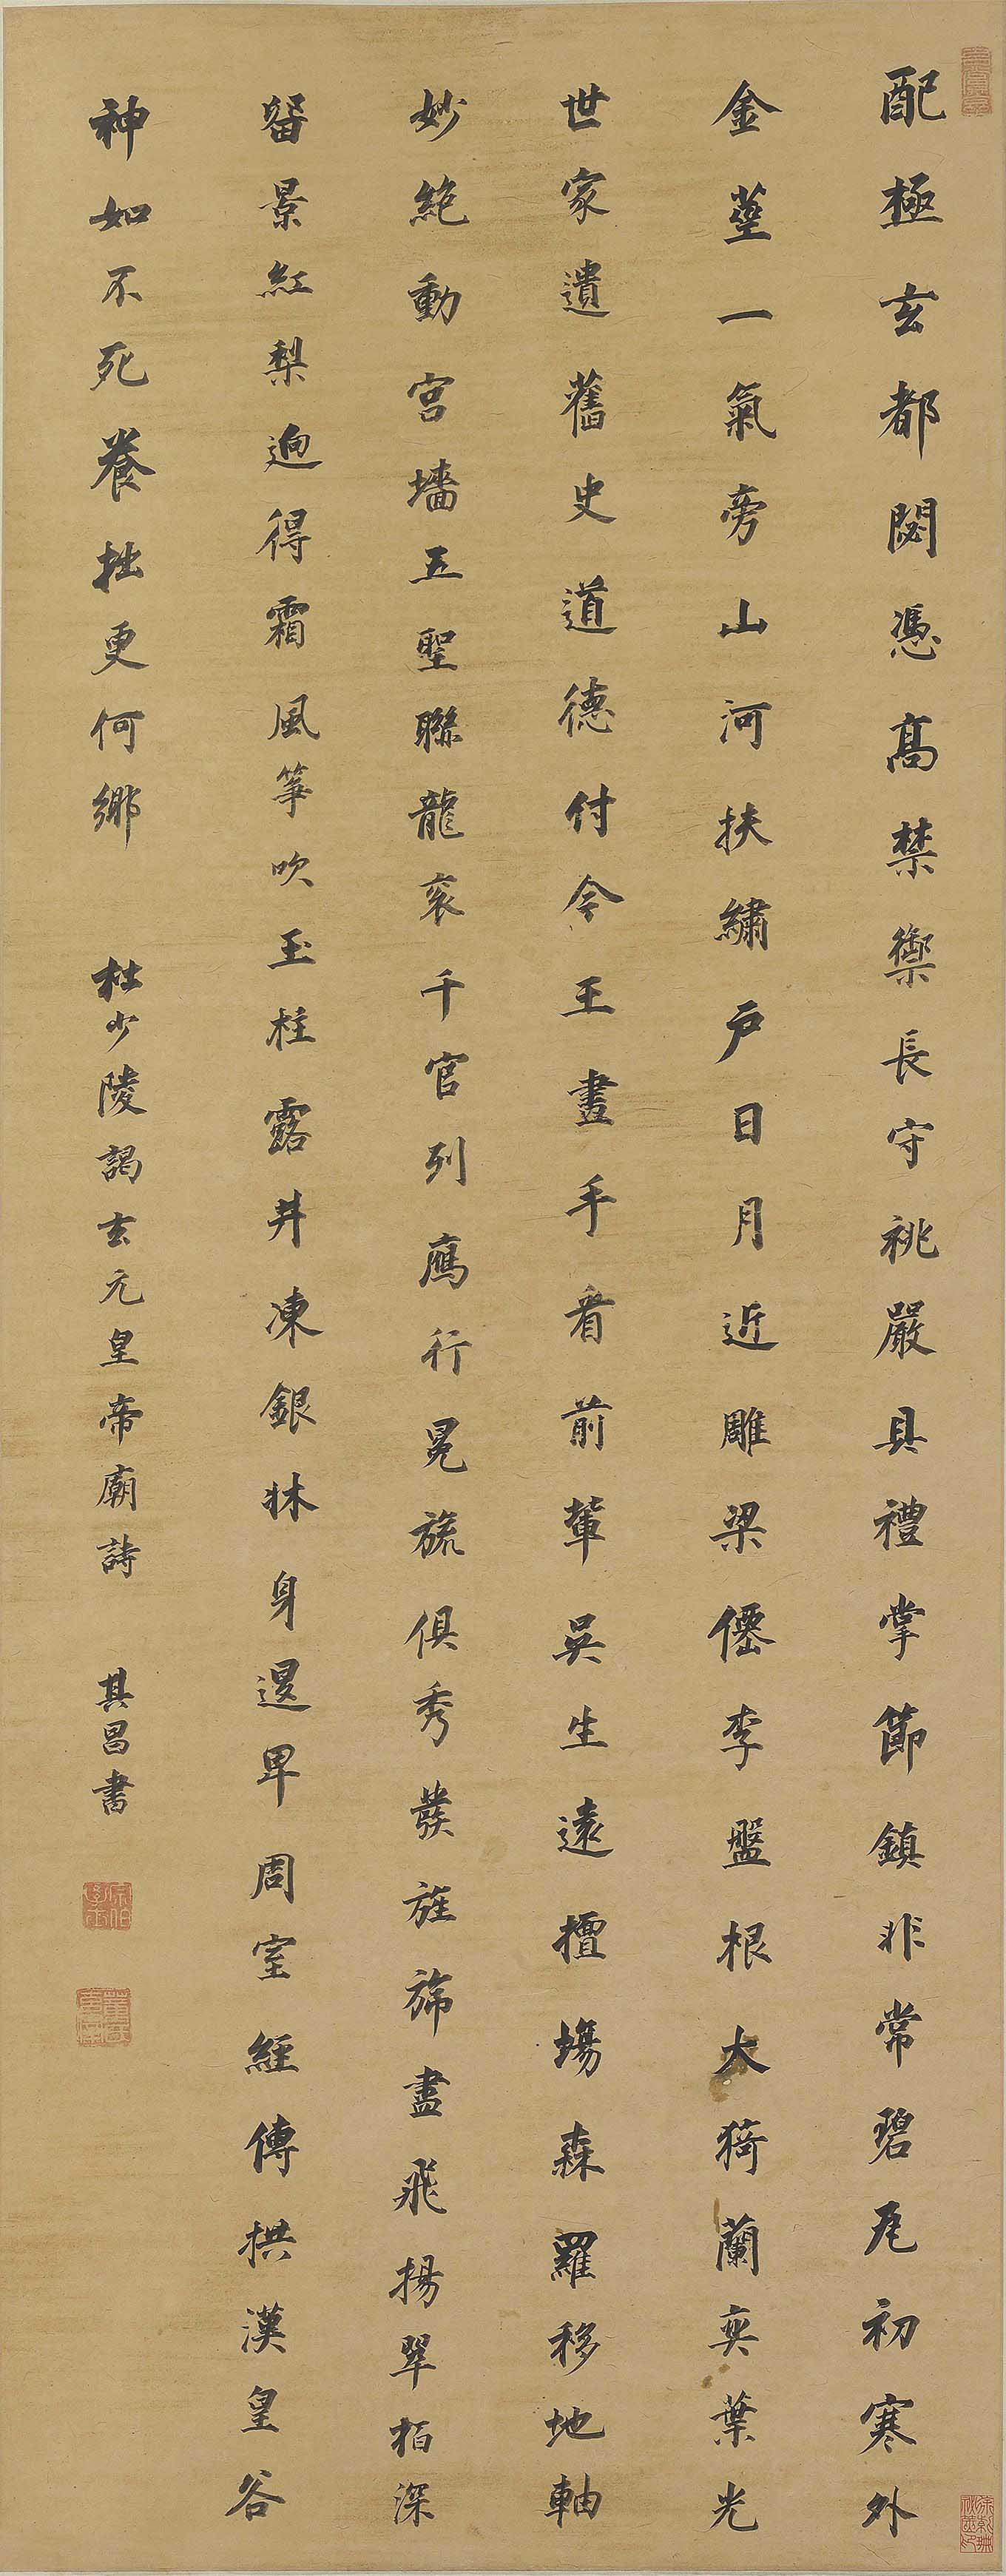 配極玄都閟憑高禁籞長守祧嚴具禮掌節鎮非常碧瓦初寒外
金莖一氣旁山河扶繡戶日月近雕梁僊李盤根大猗蘭奕葉光
世家遺舊史道德付今王畫手看前輩吳生遠擅場森羅移地軸
妙絕動宮墻五聖聯龍袞千官列鴈行冕旒俱秀發旌旆盡飛揚翠栢深
留景紅梨迥得霜風箏吹玉柱露井凍銀牀身退卑周室經傳拱漢皇谷
神如不死養拙更何鄉　杜少陵謁玄元皇帝廟詩　其昌書